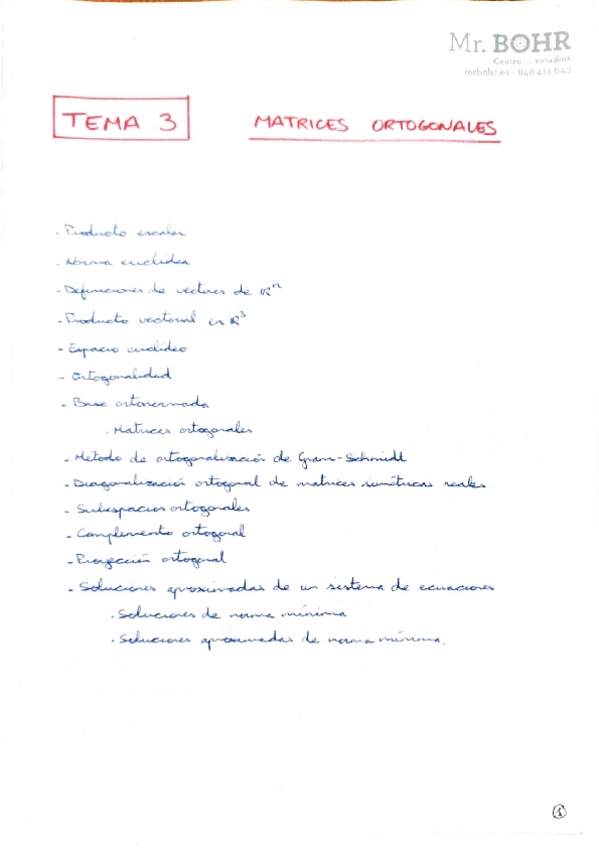 Mr. BOHR
Centro de estudios
mrbohr.es - 848 411 645
TEMA 3
MATRICES ORTOGONALES
. Producto escalar
. Norma euclídea
- Definiciones de vectores de ℝⁿ
- Producto vectorial en ℝ³
- Espacio euclídeo
- Ortogonalidad
- Base ortonormada
. Matrices ortogonales
- Método de ortogonalización de Gram-Schmidt
- Diagonalización ortogonal de matrices simétricas reales
- Subespacios ortogonales
- Complemento ortogonal
- Proyección ortogonal
- Soluciones aproximadas de un sistema de ecuaciones
. Soluciones de norma mínima
. Soluciones aproximadas de norma mínima.
1